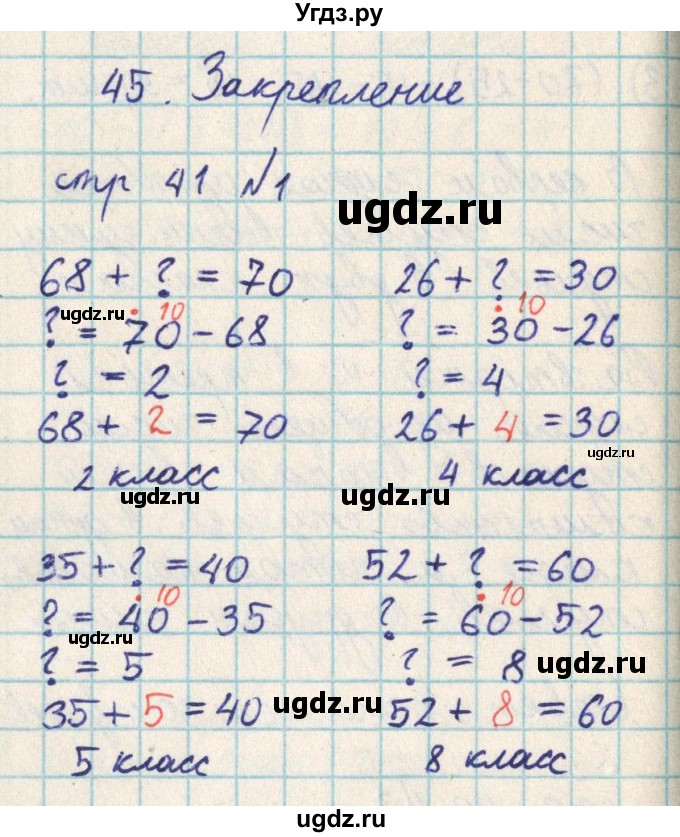 Угдз.ру
45. Закрепление
стр 41 №1
ugdz.ru
68 + ? = 70
26 + ? = 30
ugdz.ru
10
10
? = 70 - 68
? = 30 - 26
? = 2
? = 4
68 + 2 = 70
26 + 4 = 30
ugdz.ru
2 класс
4 класс
ugdz.ru
ugdz.ru
35 + ? = 40
52 + ? = 60
10
10
? = 40 - 35
? = 60 - 52
ugdz.ru
? = 5
? = 8
ugdz.ru
35 + 5 = 40
52 + 8 = 60
ugdz.ru
5 класс
8 класс
ugdz.ru